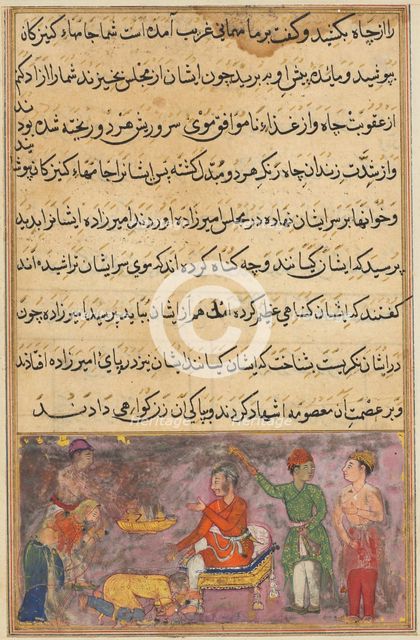 را از چاه بکشید و گفت بر ما مهمانی غریب آمده است شما جامهاء کنیزکان
بپوشید و مائده پیش او به برید چون ایشان از مجلس بخیزند شما را آزاد کنم
از عقوبت چاه و از غذاء ناموافق موی سر و ریش هر دو ریخته شده بود
و از شدت زندان چاه رنگ هر دو مبدل گشته پس ایشان را جامهاء کنیزکان پوشانیدند
و خوانها بر سر ایشان نهاده در مجلس امیرزاده اوردند امیرزاده ایشانرا بدید
پرسید که ایشان کیانند و چه گناه کرده اند که موی سر ایشان تراشیده اند
گفتند که ایشان گناهی عظیم کرده اند هم از ایشان بباید پرسید امیرزاده چون
در ایشان نگریست بشناخت که ایشان کیانند ایشان نیز در پای امیرزاده افتادند
و بر عصمت ان معصومه اشهاد کردند و بپاکی آن زن گواهی دادند